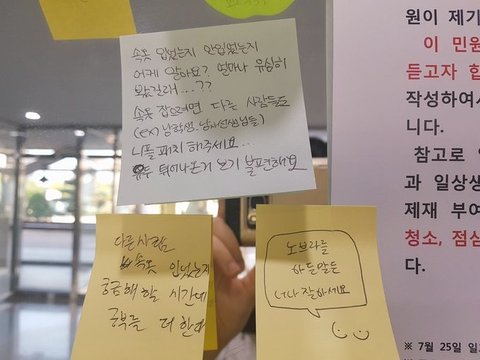 속옷 입었는지 안입었는지
어케 알아요? 얼마나 유심히
봤길래...??
속옷 잡으려면 다른 사람들도
(ex) 남학생, 남자선생님들)
니플패치 해주세요...
유두 튀어나온거 보기 불편해요
다른사람
속옷 입었는지
궁금해할 시간에
공부를 더 한다
노브라를
하든말든
너나 잘하세요
원이 제기
이 민원
듣고자 합
작성하여
니다.
참고로
과 일상생
제재 부여
청소, 점심
다.
※ 7월 25일 일